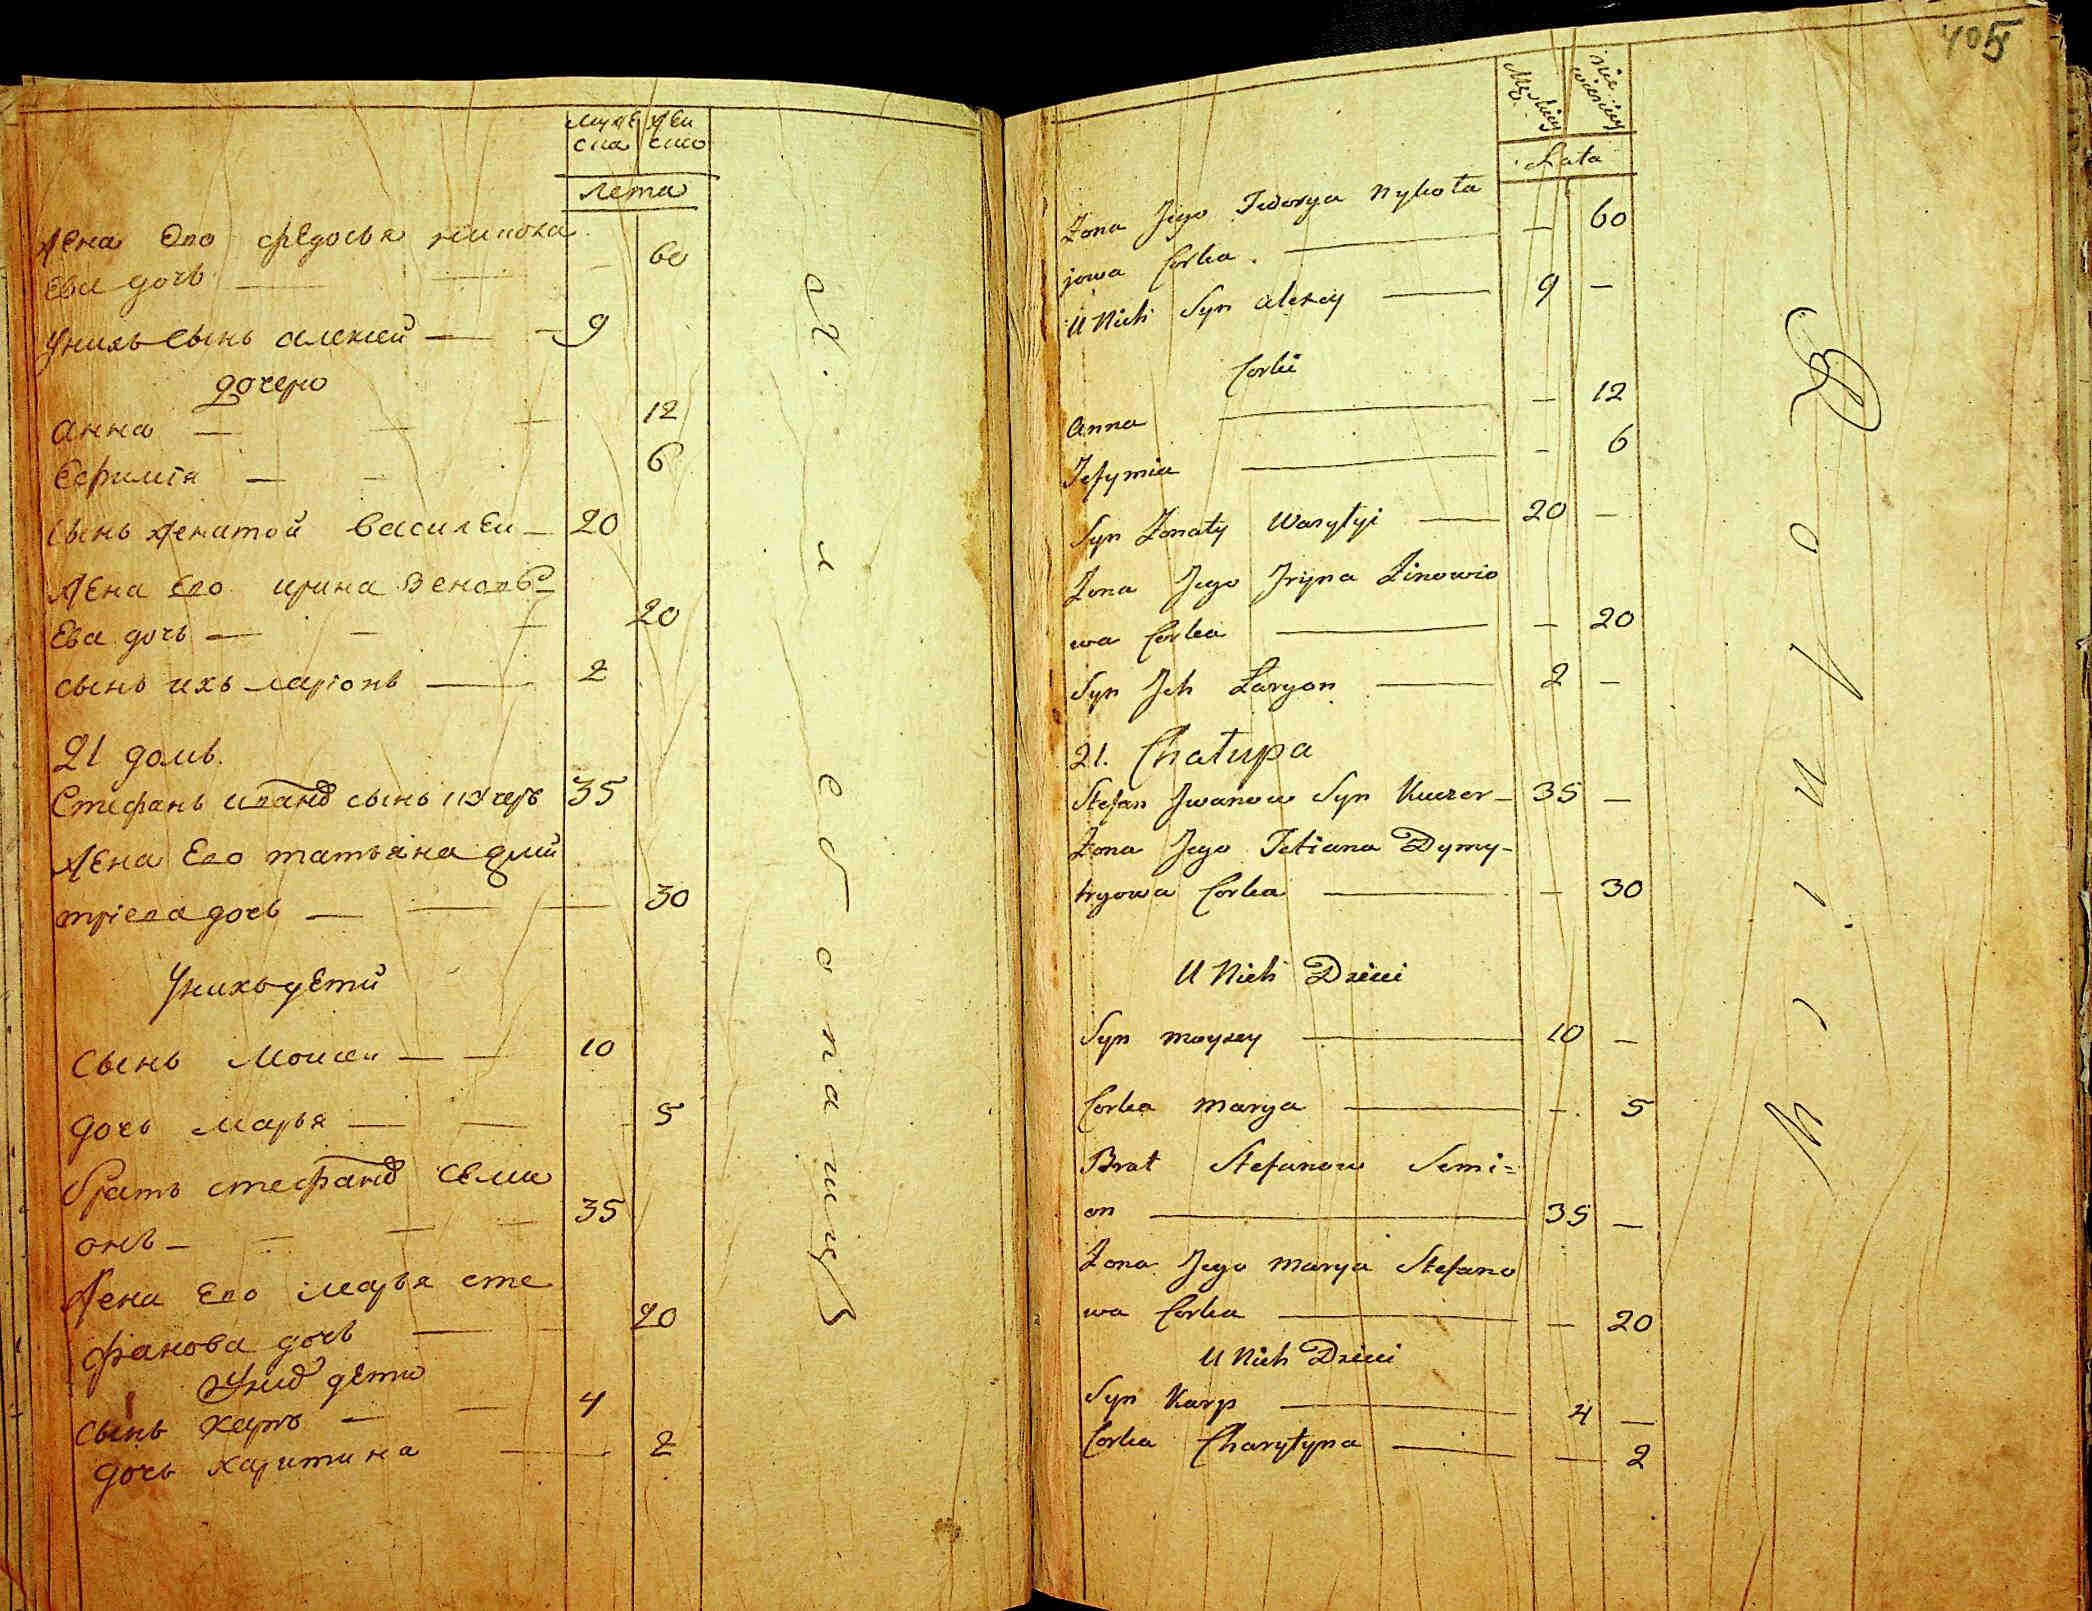 муже жен
ска ско
лета
Жена Ево Федосья никола
Ева дочь — — — 60
У нихъ сынъ алексей — — 9
дочери
анна — — — 12
Ефимїя — — 6
сынъ женатой василеи — 20
Жена Ево ирина Зеновь=
Ева дочь — — — 20
сынъ ихъ ларїонъ — 2
21 домъ.
Стефанъ сынъ 35
Жена Ево татьяна дми
трїева дочь — — — 30
У нихъ дети
Сынъ Моисеи — — 10
дочь марья — — 5
братъ стефановъ семи
онъ — — — — 35
Жена Ево марья сте
фанова дочь — — 20
дети
сынъ карпъ — — 4
дочь харитина — — 2
405
Męskiey
Lata
Żona Jego Fedosya Nykoła
jowa Corka. — — 60
U Nich Syn alexey — 9 —
Corki
Anna — — 12
Jefymia — — 6
Syn Żonaty Wasylyi — 20 —
Żona Jego Jryna Zinowio
wa Corka — — 20
Syn Jch Laryon — 2 —
21. Chałupa
Stefan Jwanow Syn Kuczer — 35 —
Żona Jego Tetiana Dymy-
tryowa Corka — — 30
U Nich Dzieci
Syn moysey — 10 —
Corka marya — — 5
Brat Stefanow Semi=
on — 35 —
Żona Jego marya Stefano
wa Corka — — 20
U Nich Dzieci
Syn Karp — 4 —
Corka Charytyna — — 2